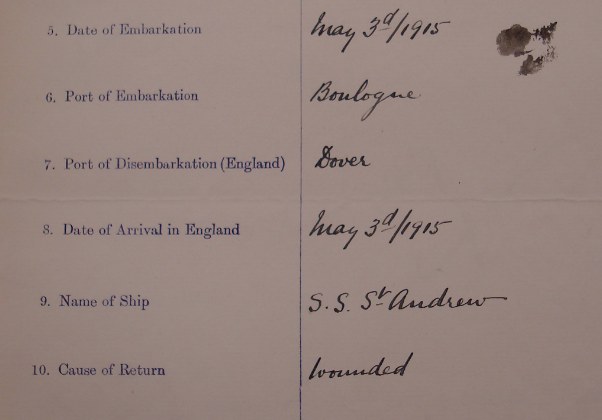 5. Date of Embarkation May 3d/1915
6. Port of Embarkation Boulogne
7. Port of Disembarkation (England) Dover
8. Date of Arrival in England May 3d/1915
9. Name of Ship S.S. St Andrew
10. Cause of Return Wounded